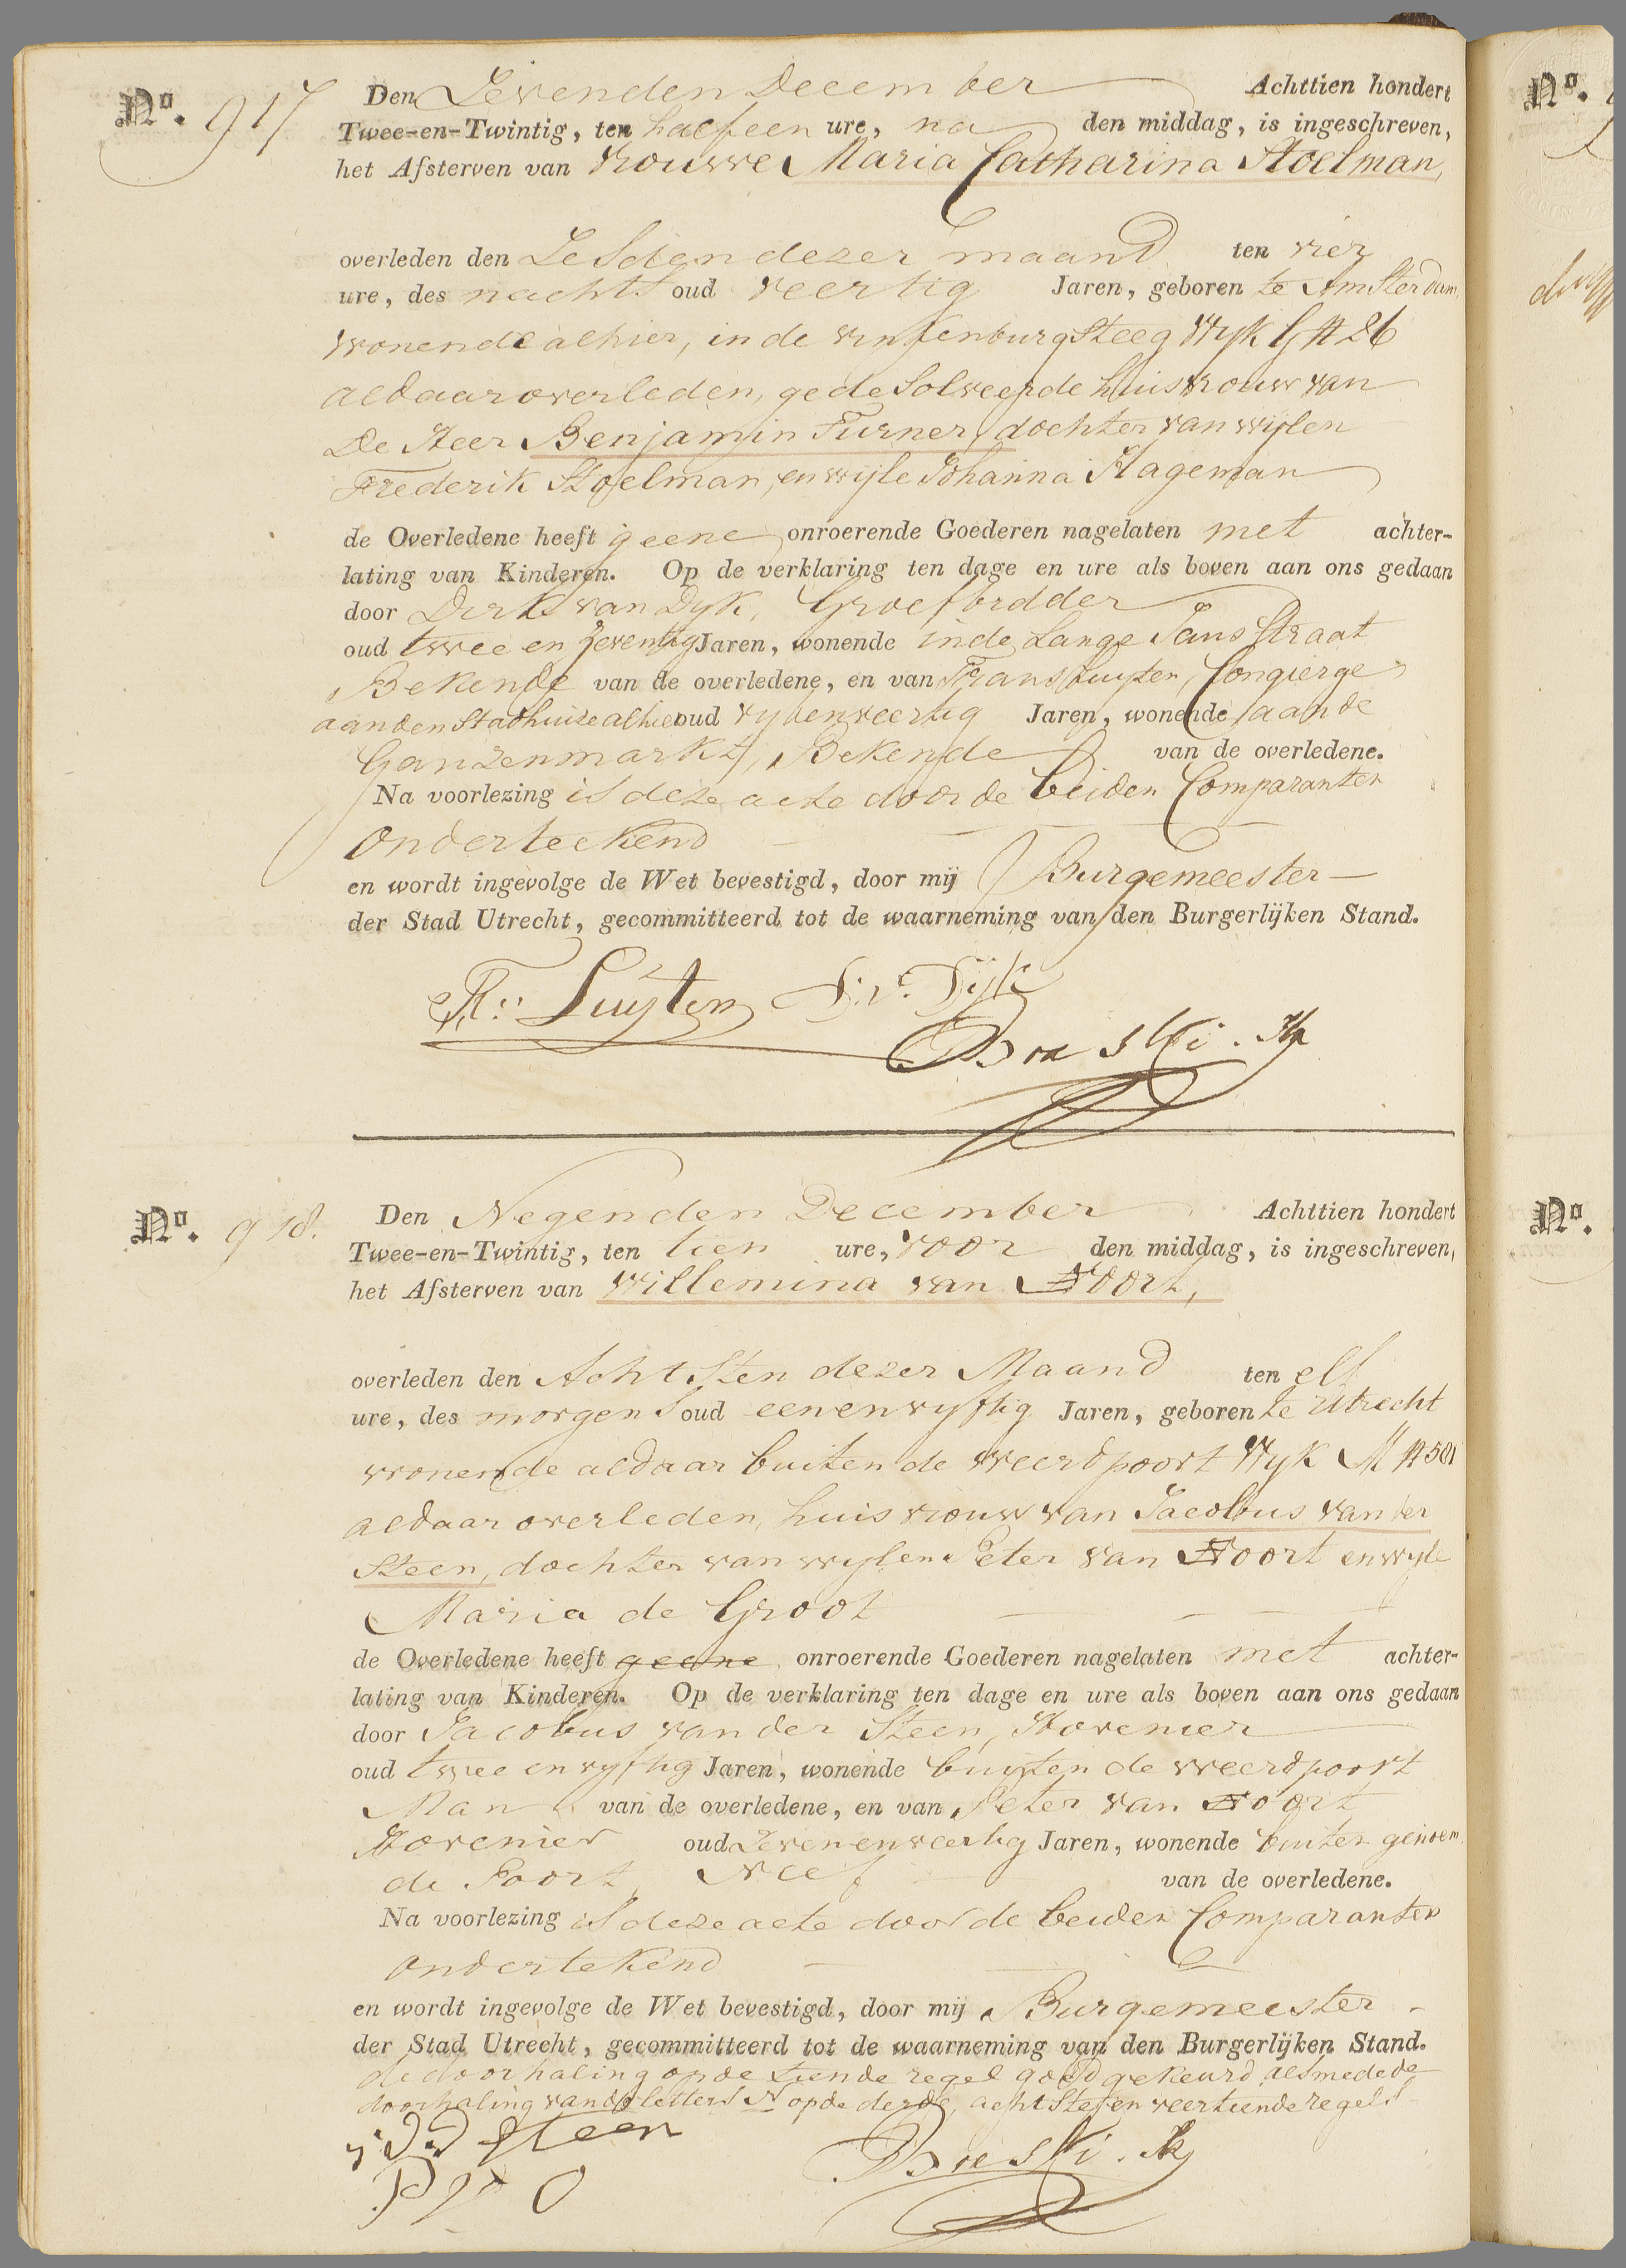 No. 917 Den Zevenden December Achttien hondert
Twee-en-Twintig, ten half een ure, na den middag, is ingeschreven,
het Afsterven van Vrouwe Maria Catharina Stoelman,
overleden den Zesden dezer maand ten vier
ure, des nachts oud veertig Jaren, geboren te Amsterdam,
wonende alhier, in de vinkenburgsteeg Wyk G N 26
aldaar overleden, gedesolveerde huisvrouw van
De Heer Benjamin Furner, dochter van wijlen
Frederik Stoelman, en wijle Johanna Hageman
de Overledene heeft geene onroerende Goederen nagelaten met achter-
lating van Kinderen. Op de verklaring ten dage en ure als boven aan ons gedaan
door Dirk van Dyk, Groefbidder
oud twee en zeventig Jaren, wonende in de Lange Jans Straat
Bekende van de overledene, en van Frans Luyten, Congierge
aan den Stadhuize alhier oud vyf en veertig Jaren, wonende aan de
Ganzenmarkt, Bekende van de overledene.
Na voorlezing is deze acte door de beiden Comparanten
onderteekend
en wordt ingevolge de Wet bevestigd, door mij Burgemeester
der Stad Utrecht, gecommitteerd tot de waarneming van den Burgerlijken Stand.
Fr: Luijten D. v. Dijk
No. 918. Den Negenden December Achttien hondert
Twee-en-Twintig, ten tien ure, voor den middag, is ingeschreven,
het Afsterven van Willemina van Noort,
overleden den Achtsten dezer Maand ten elf
ure, des morgens oud een en vyftig Jaren, geboren te Utrecht
wonende aldaar buiten de weerdpoort Wyk M N 581
aldaar overleden, huisvrouw van Jacobus van der
Steen, dochter van wylen Peter van Noort en wyle
Maria de Groot
de Overledene heeft geene onroerende Goederen nagelaten met achter-
lating van Kinderen. Op de verklaring ten dage en ure als boven aan ons gedaan
door Jacobus van der Steen, Hovenier
oud twee en vyftig Jaren, wonende buiten de weerdpoort
Man van de overledene, en van Peter van Noort
Hovenier oud Zeven en veertig Jaren, wonende buiten genoem
de Poort, Neef van de overledene.
Na voorlezing is deze acte door de beiden Comparanten
ondertekend
en wordt ingevolge de Wet bevestigd, door mij Burgemeester
der Stad Utrecht, gecommitteerd tot de waarneming van den Burgerlijken Stand.
de doorhaling op de tiende regel goed gekeurd alsmede de
doorhaling van de letters N op de derde, achtste en veertiende regels
Steen
No.
No.